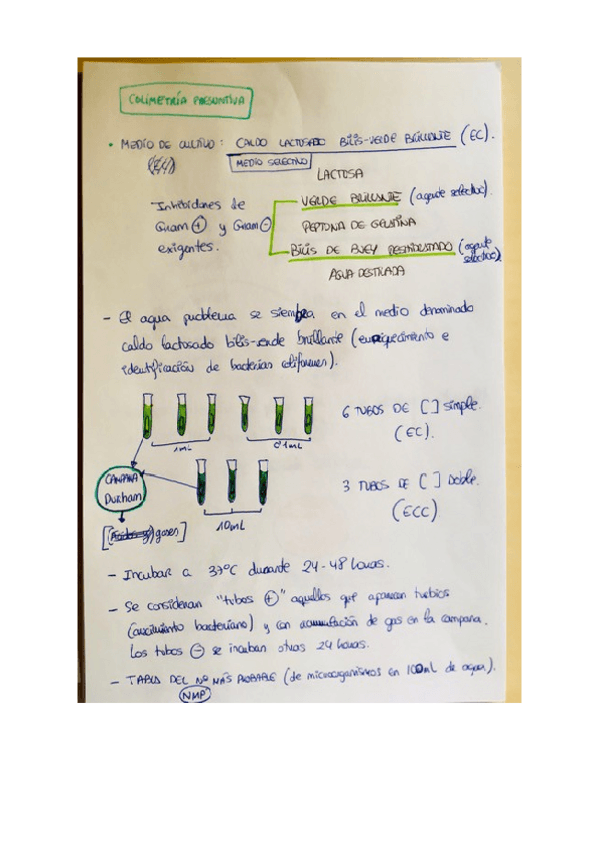 COLIMETRÍA PRESUNTIVA
• MEDIO DE CULTIVO: CALDO LACTOSADO BILIS-VERDE BRILLANTE (EC).
MEDIO SELECTIVO
LACTOSA
Inhibidores de
Gram ⊕ y Gram ⊖
exigentes.
VERDE BRILLANTE (agente selectivo).
PEPTONA DE GELATINA
BILIS DE BUEY DESHIDRATADO (agente
selectivo).
AGUA DESTILADA
- El agua problema se siembra en el medio denominado
caldo lactosado bilis-verde brillante (enriquecimiento e
identificación de bacterias coliformes).
1mL
0'1mL
6 TUBOS DE [ ] simple.
(EC).
CAMPANA
Durham
10mL
3 TUBOS DE [ ] Doble.
(ECC)
gases]
- Incubar a 37ºC durante 24-48 horas.
- Se consideran "tubos ⊕" aquellos que aparecen turbios
(crecimiento bacteriano) y con acumulación de gas en la campana.
Los tubos ⊖ se incuban otras 24 horas.
- TABLA DEL Nº MÁS PROBABLE (de microorganismos en 100mL de agua).
NMP